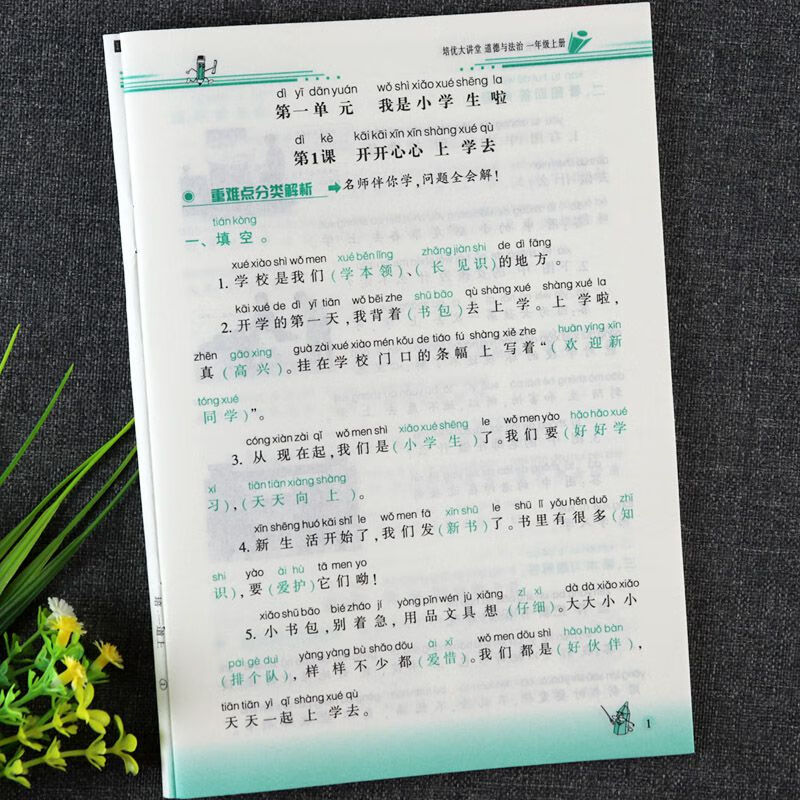 培优大讲堂 道德与法治 一年级上册
dì yī dān yuán wǒ shì xiǎo xué shēng la
第一单元 我是小学生啦
dì kè kāi kāi xīn xīn shàng xué qù
第1课 开开心心上学去
重难点分类解析 ➡名师伴你学,问题全会解!
tián kòng
一、填空。
xué xiào shì wǒ men xué běn lǐng zhǎng jiàn shi de dì fāng
1.学校是我们(学本领)、(长见识)的地方。
kāi xué de dì yī tiān wǒ bēi zhe shū bāo qù shàng xué shàng xué la
2.开学的第一天,我背着(书包)去上学。上学啦,
zhēn gāo xìng guà zài xué xiào mén kǒu de tiáo fú shàng xiě zhe huān yíng xīn
真(高兴)。挂在学校门口的条幅上写着“(欢迎新
tóng xué
同学)”。
cóng xiàn zài qǐ wǒ men shì xiǎo xué shēng le wǒ men yào hǎo hǎo xué
3.从现在起,我们是(小学生)了。我们要(好好学
xí tiān tiān xiàng shàng
习),(天天向上)。
xīn shēng huó kāi shǐ le wǒ men fā xīn shū le shū lǐ yǒu hěn duō zhī
4.新生活开始了,我们发(新书)了。书里有很多(知
shi yào ài hù tā men yo
识),要(爱护)它们呦!
xiǎo shū bāo bié zháo jí yòng pǐn wén jù xiǎng zǐ xì dà dà xiǎo xiǎo
5.小书包,别着急,用品文具想(仔细)。大大小小
pái gè duì yàng yàng bù shǎo dōu ài xī wǒ men dōu shì hǎo huǒ bàn
(排个队),样样不少都(爱惜)。我们都是(好伙伴),
tiān tiān yì qǐ shàng xué qù
天天一起上学去。
1